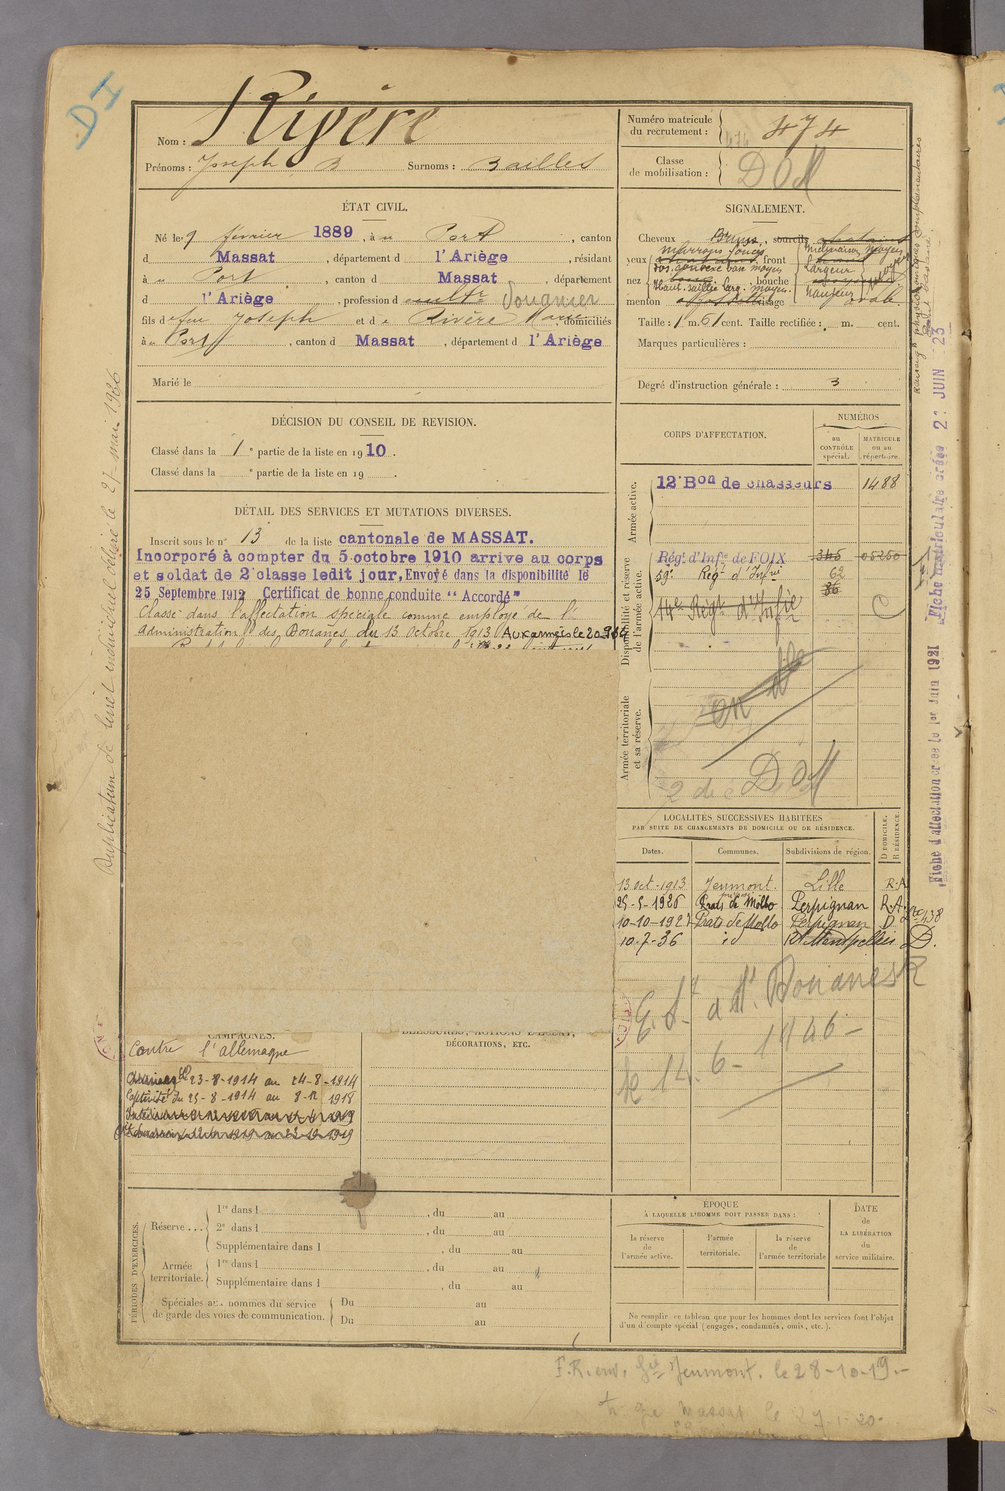 DI
Nom : Rivère
Prénoms : Joseph B Surnoms : Bailles
Numéro matricule du recrutement : 474
Classe de mobilisation : DOM
ÉTAT CIVIL.
Né le 9 février 1889, à Port, canton
d Massat, département d l'Ariège, résidant
à Port, canton d Massat, département
d l'Ariège, profession d cultr Douanier
fils d feu Joseph et d Rivère Marie, domiciliés
à Port, canton d Massat, département d l'Ariège
Marié le
SIGNALEMENT.
Cheveux Bruns, sourcils
yeux marrons foncés front
nez bouche
menton visage ovale
Taille : 1 m. 61 cent. Taille rectifiée : m. cent.
Marques particulières :
Degré d'instruction générale : 3
DÉCISION DU CONSEIL DE REVISION.
Classé dans la 1e partie de la liste en 1910.
Classé dans la e partie de la liste en 19 .
DÉTAIL DES SERVICES ET MUTATIONS DIVERSES.
Inscrit sous le n° 13 de la liste cantonale de MASSAT.
Incorporé à compter du 5 octobre 1910 arrive au corps
et soldat de 2e classe ledit jour, Envoyé dans la disponibilité le
25 Septembre 1912 Certificat de bonne conduite "Accordé"
Classé dans l'affectation spéciale comme employé de l'
Administration des Douanes du 13 Octobre 1913. Aux armées le 20
CORPS D'AFFECTATION.
NUMÉROS
au CONTRÔLE spécial.
MATRICULE ou au répertoire.
Armée active.
12e Bon de chasseurs 1488
Disponibilité et réserve de l'armée active.
Régt d'Infie de FOIX 345 05250
59e Régt d'Infie 62
86
14e Régt d'Infie
Armée territoriale et sa réserve.
DOM
LOCALITÉS SUCCESSIVES HABITÉES
PAR SUITE DE CHANGEMENTS DE DOMICILE OU DE RÉSIDENCE.
Dates. Communes. Subdivisions de région. D DOMICILE. R RÉSIDENCE.
13 oct. 1913 Jeumont. Lille R.A
25-5-1926 Prats de Mollo Perpignan R.A.
10-10-1927 Prats de Mollo Perpignan D
10-7-36 id Montpellier D.
E.A. Douanes
le 14-6-1946
CAMPAGNES.
Contre l'allemagne
23-8-1914 au 24-8-1914
Captivité du 25-8-1914 au 8-12 1918
BLESSURES, ACTIONS D'ÉCLAT,
DÉCORATIONS, ETC.
PÉRIODES D'EXERCICES.
Réserve ... 1re dans l , du au
2e dans l , du au
Supplémentaire dans l , du au
Armée territoriale. 1re dans l , du au
Supplémentaire dans l , du au
Spéciales aux hommes du service de garde des voies de communication. Du au
Du au
ÉPOQUE
À LAQUELLE L'HOMME DOIT PASSER DANS :
la réserve de l'armée active.
l'armée territoriale.
la réserve de l'armée territoriale
DATE de LA LIBÉRATION du service militaire.
Ne remplir ce tableau que pour les hommes dont les services font l'objet
d'un décompte spécial (engagés, condamnés, omis, etc.).
F.R. env. Gie Jeumont. le 28-10-19.-
Massat le 27-1-20-
Duplicatum de livret individuel délivré le 27 mai 1936
Fiche matriculaire créée 21 JUIN 23
Fiche d'affectation créée le 1er Juin 1921